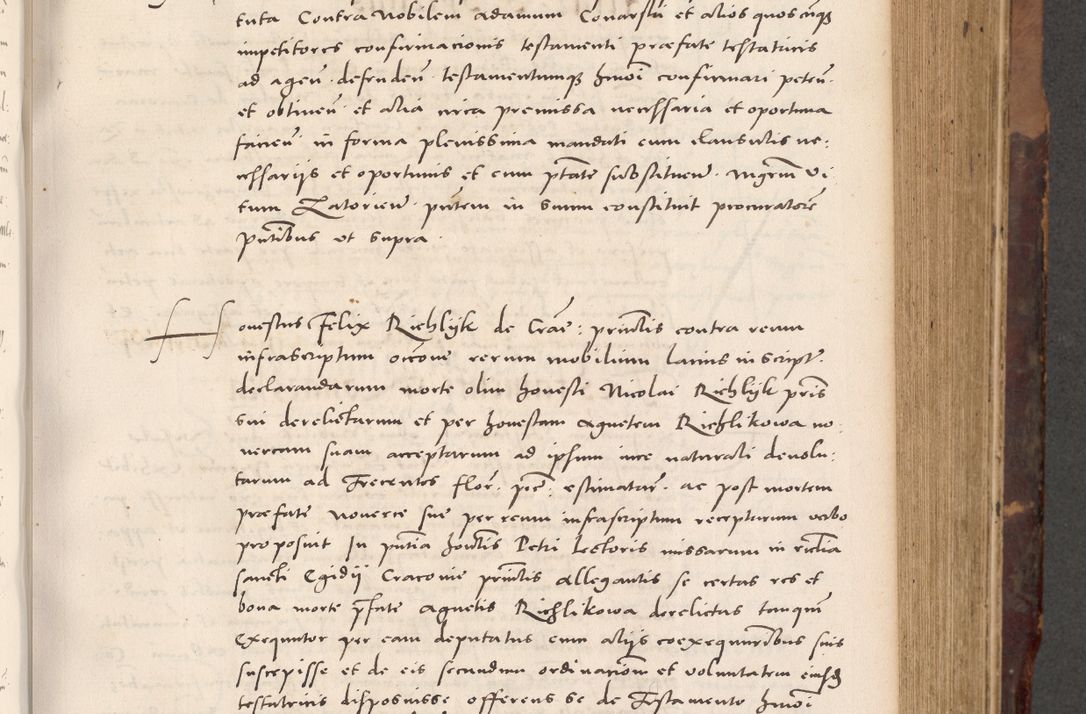 tuta Contra Nobilem Adamum Conarski et alios quoscumq
impetitores confirmacionis testamenti præfate testatricis
ad agen̄ . defenden̄ . testamentumq hmōi confirmari peten̄ .
et obtinen̄ . et alia circa premissa necessaria et oportuna
facien̄ in forma plenissima mandati cum clausulis ne:
cessarijs et oportunis et cum ptāte substituen̄ . Mgrm̄ Vi
tum Latorien̄ . pn̄tem in Suum constituit procuratore
pn̄tibus ut supra .
Honestus Felix Richlijk de Crac̄ : prīn̄lis contra reum
infrascriptum occōne rerum mobilium lacius in script̄ .
declarandarum morte olim honesti Nicolai Richlijk pr̄is
sui derelictarum et per honestam Agnetem Richlikowa no:
vercam suam acceptarum ad ipsum iure naturali devolu:
tarum ad Trecentos flor̄ . pēc : estimatar̄ . ac post mortem
præfate Noverce sue per reum infrascriptum receptarum verbo
proposuit In pn̄tia hon̄lis Petri lectoris missarum in eccl̄ia
sancti Egidÿ Cracovie prīn̄lis allegantis se certas res et
bona morte p̄fate Agnetis Richlikowa derelictas tanqum̄
Exequutor per eam deputatus cum alijs coexequutoribus suis
suscepisse et de eis secundum ordinacīom et voluntatem eiusd
testatricis disposuisse offerens se de Testamento hmōi